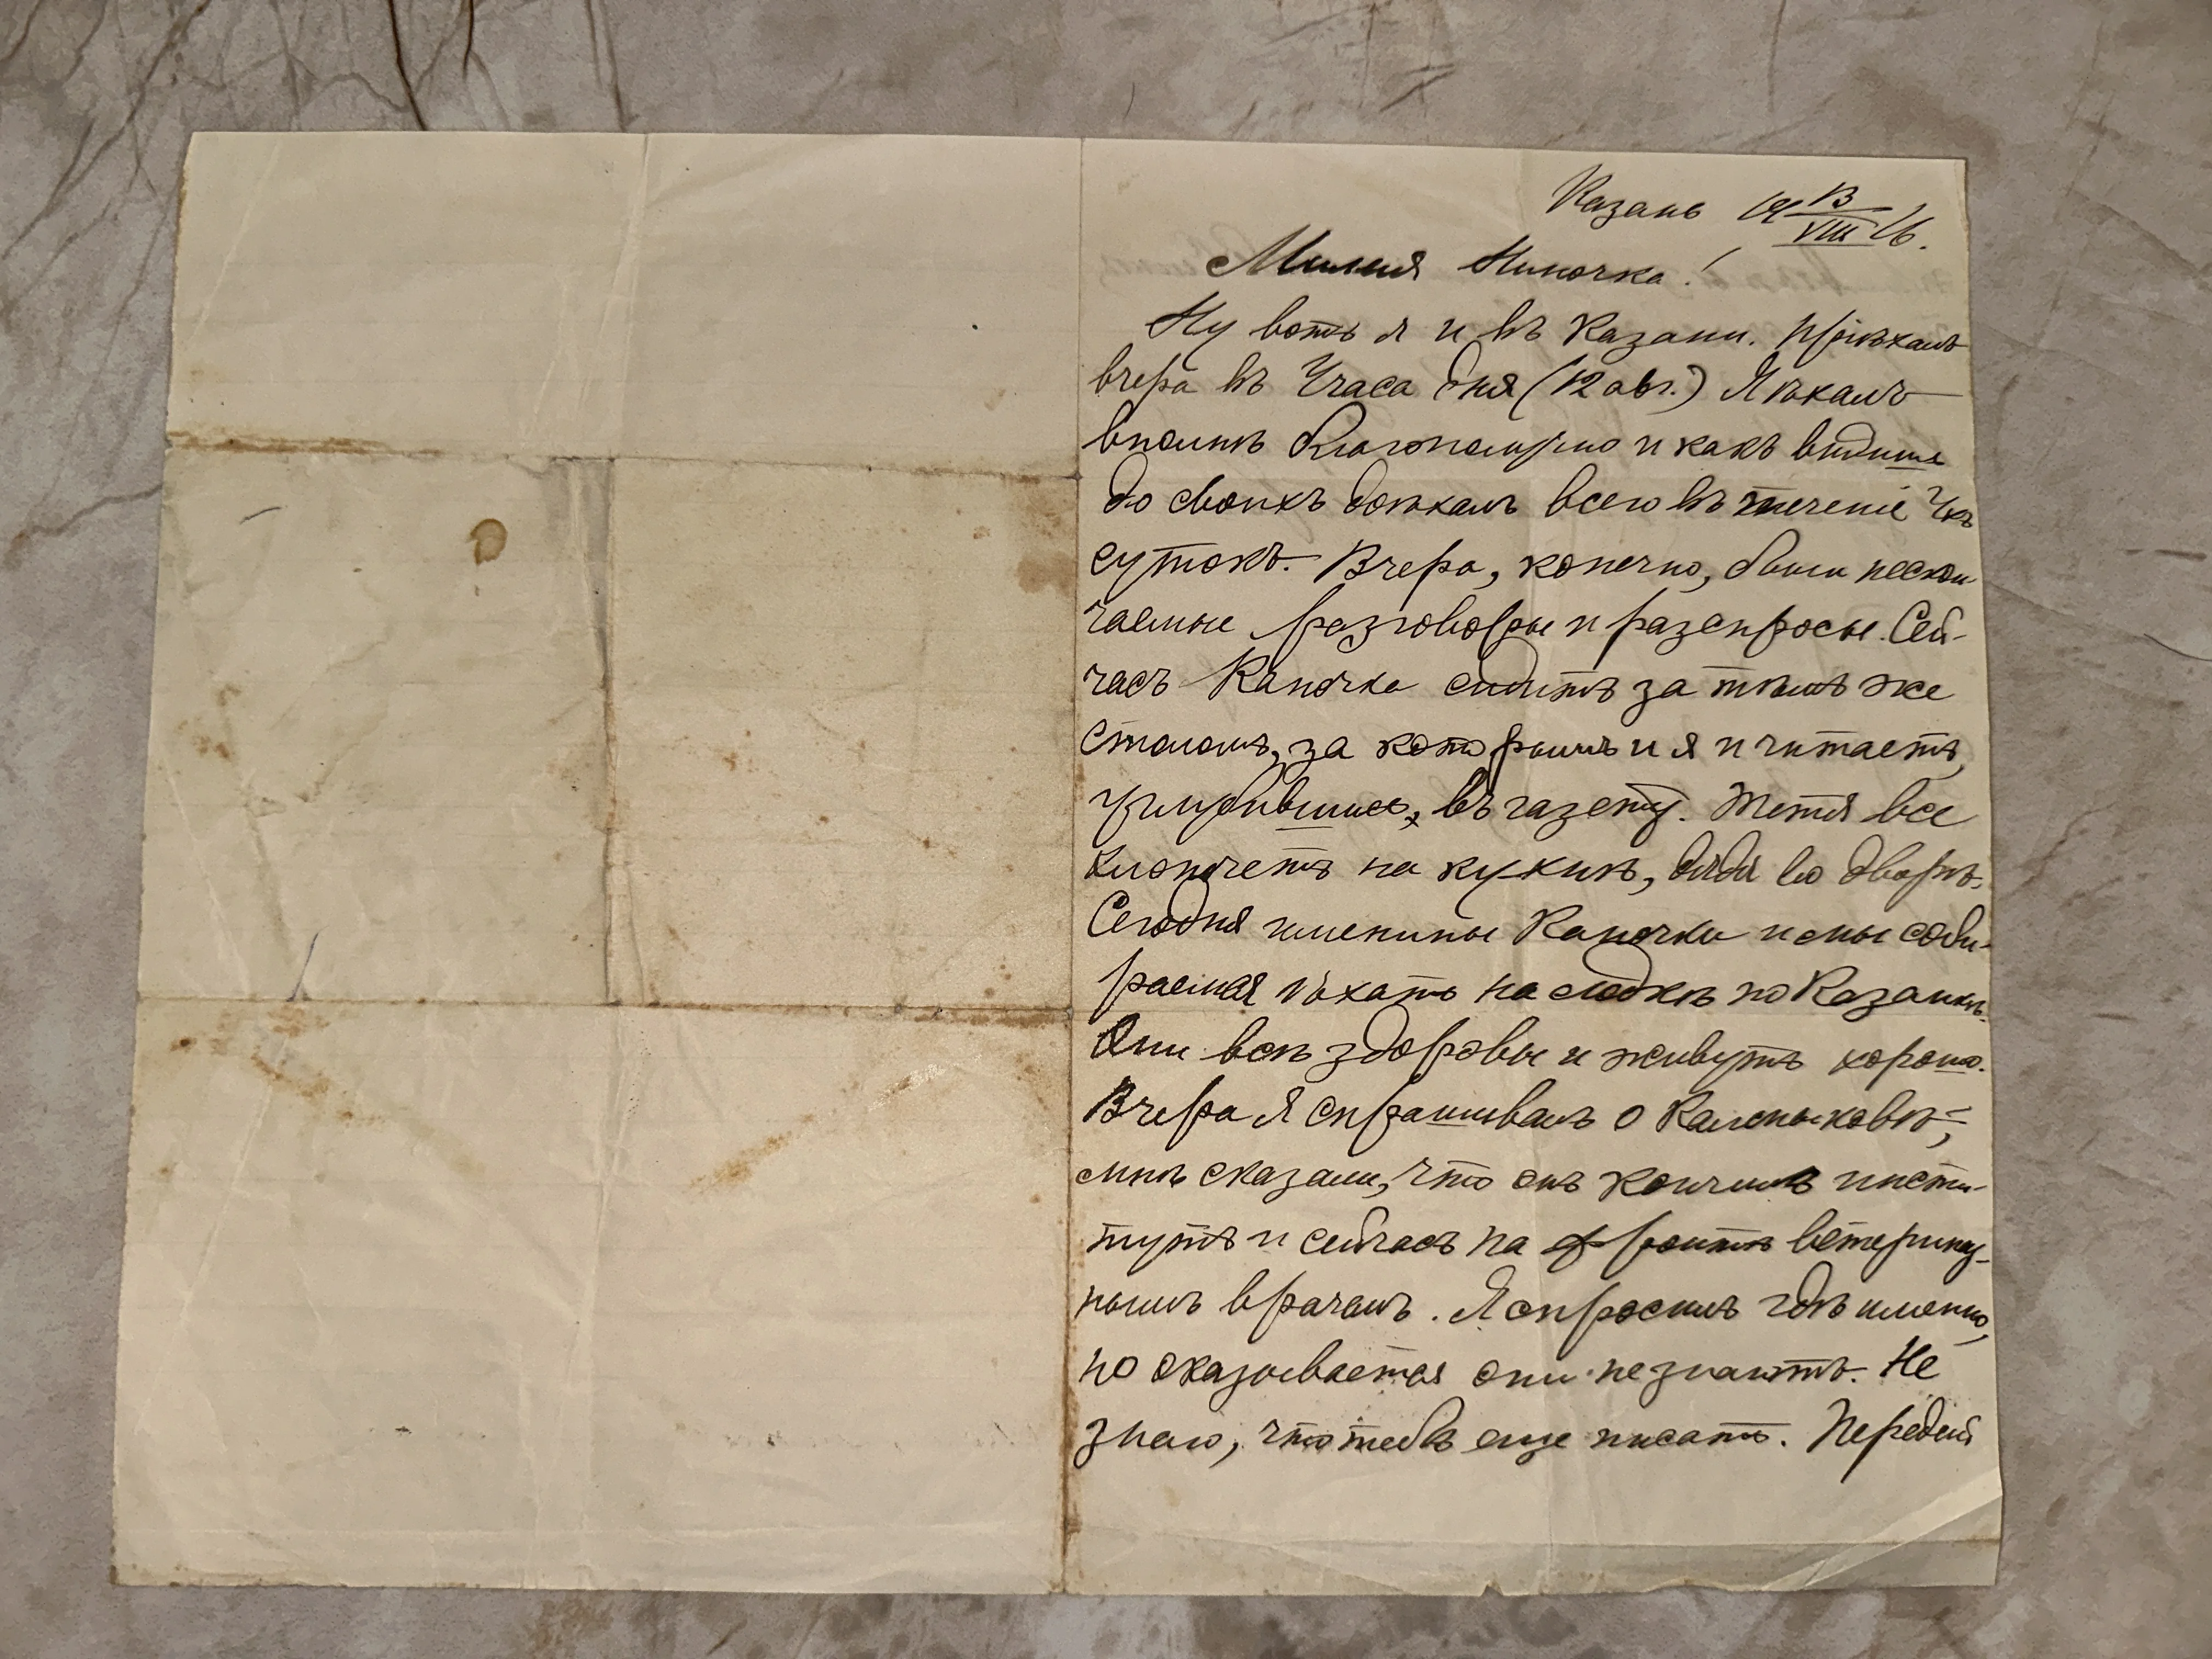 Казань 19 13/VIII 16.
Милая Ниночка!
Ну вотъ я и въ Казани. Пріѣхалъ
вчера въ 4 часа дня (12 авг.) Я ѣхалъ
вполнѣ благополучно и какъ видишь
до своихъ доѣхалъ всего въ теченіе 4хъ
сутокъ. Вчера, конечно, были нескон-
чаемые разговоры и разспросы. Сей-
часъ Капочка сидитъ за тѣмъ же
столомъ, за которымъ и я и читаетъ,
углубившись, въ газету. Тетя все
хлопочетъ на кухнѣ, дядя во дворѣ.
Сегодня именины Капочки и мы соби-
раемся ѣхать на лодкѣ по Казанкѣ.
Они всѣ здоровы и живутъ хорошо.
Вчера я спрашивалъ о Калмыковѣ,
мнѣ сказали, что онъ кончилъ инсти-
тутъ и сейчасъ на фронтѣ ветеринар-
нымъ врачемъ. Я спросилъ гдѣ именно,
но оказывается они не знаютъ. Не
знаю, что тебѣ еще писать. Передай